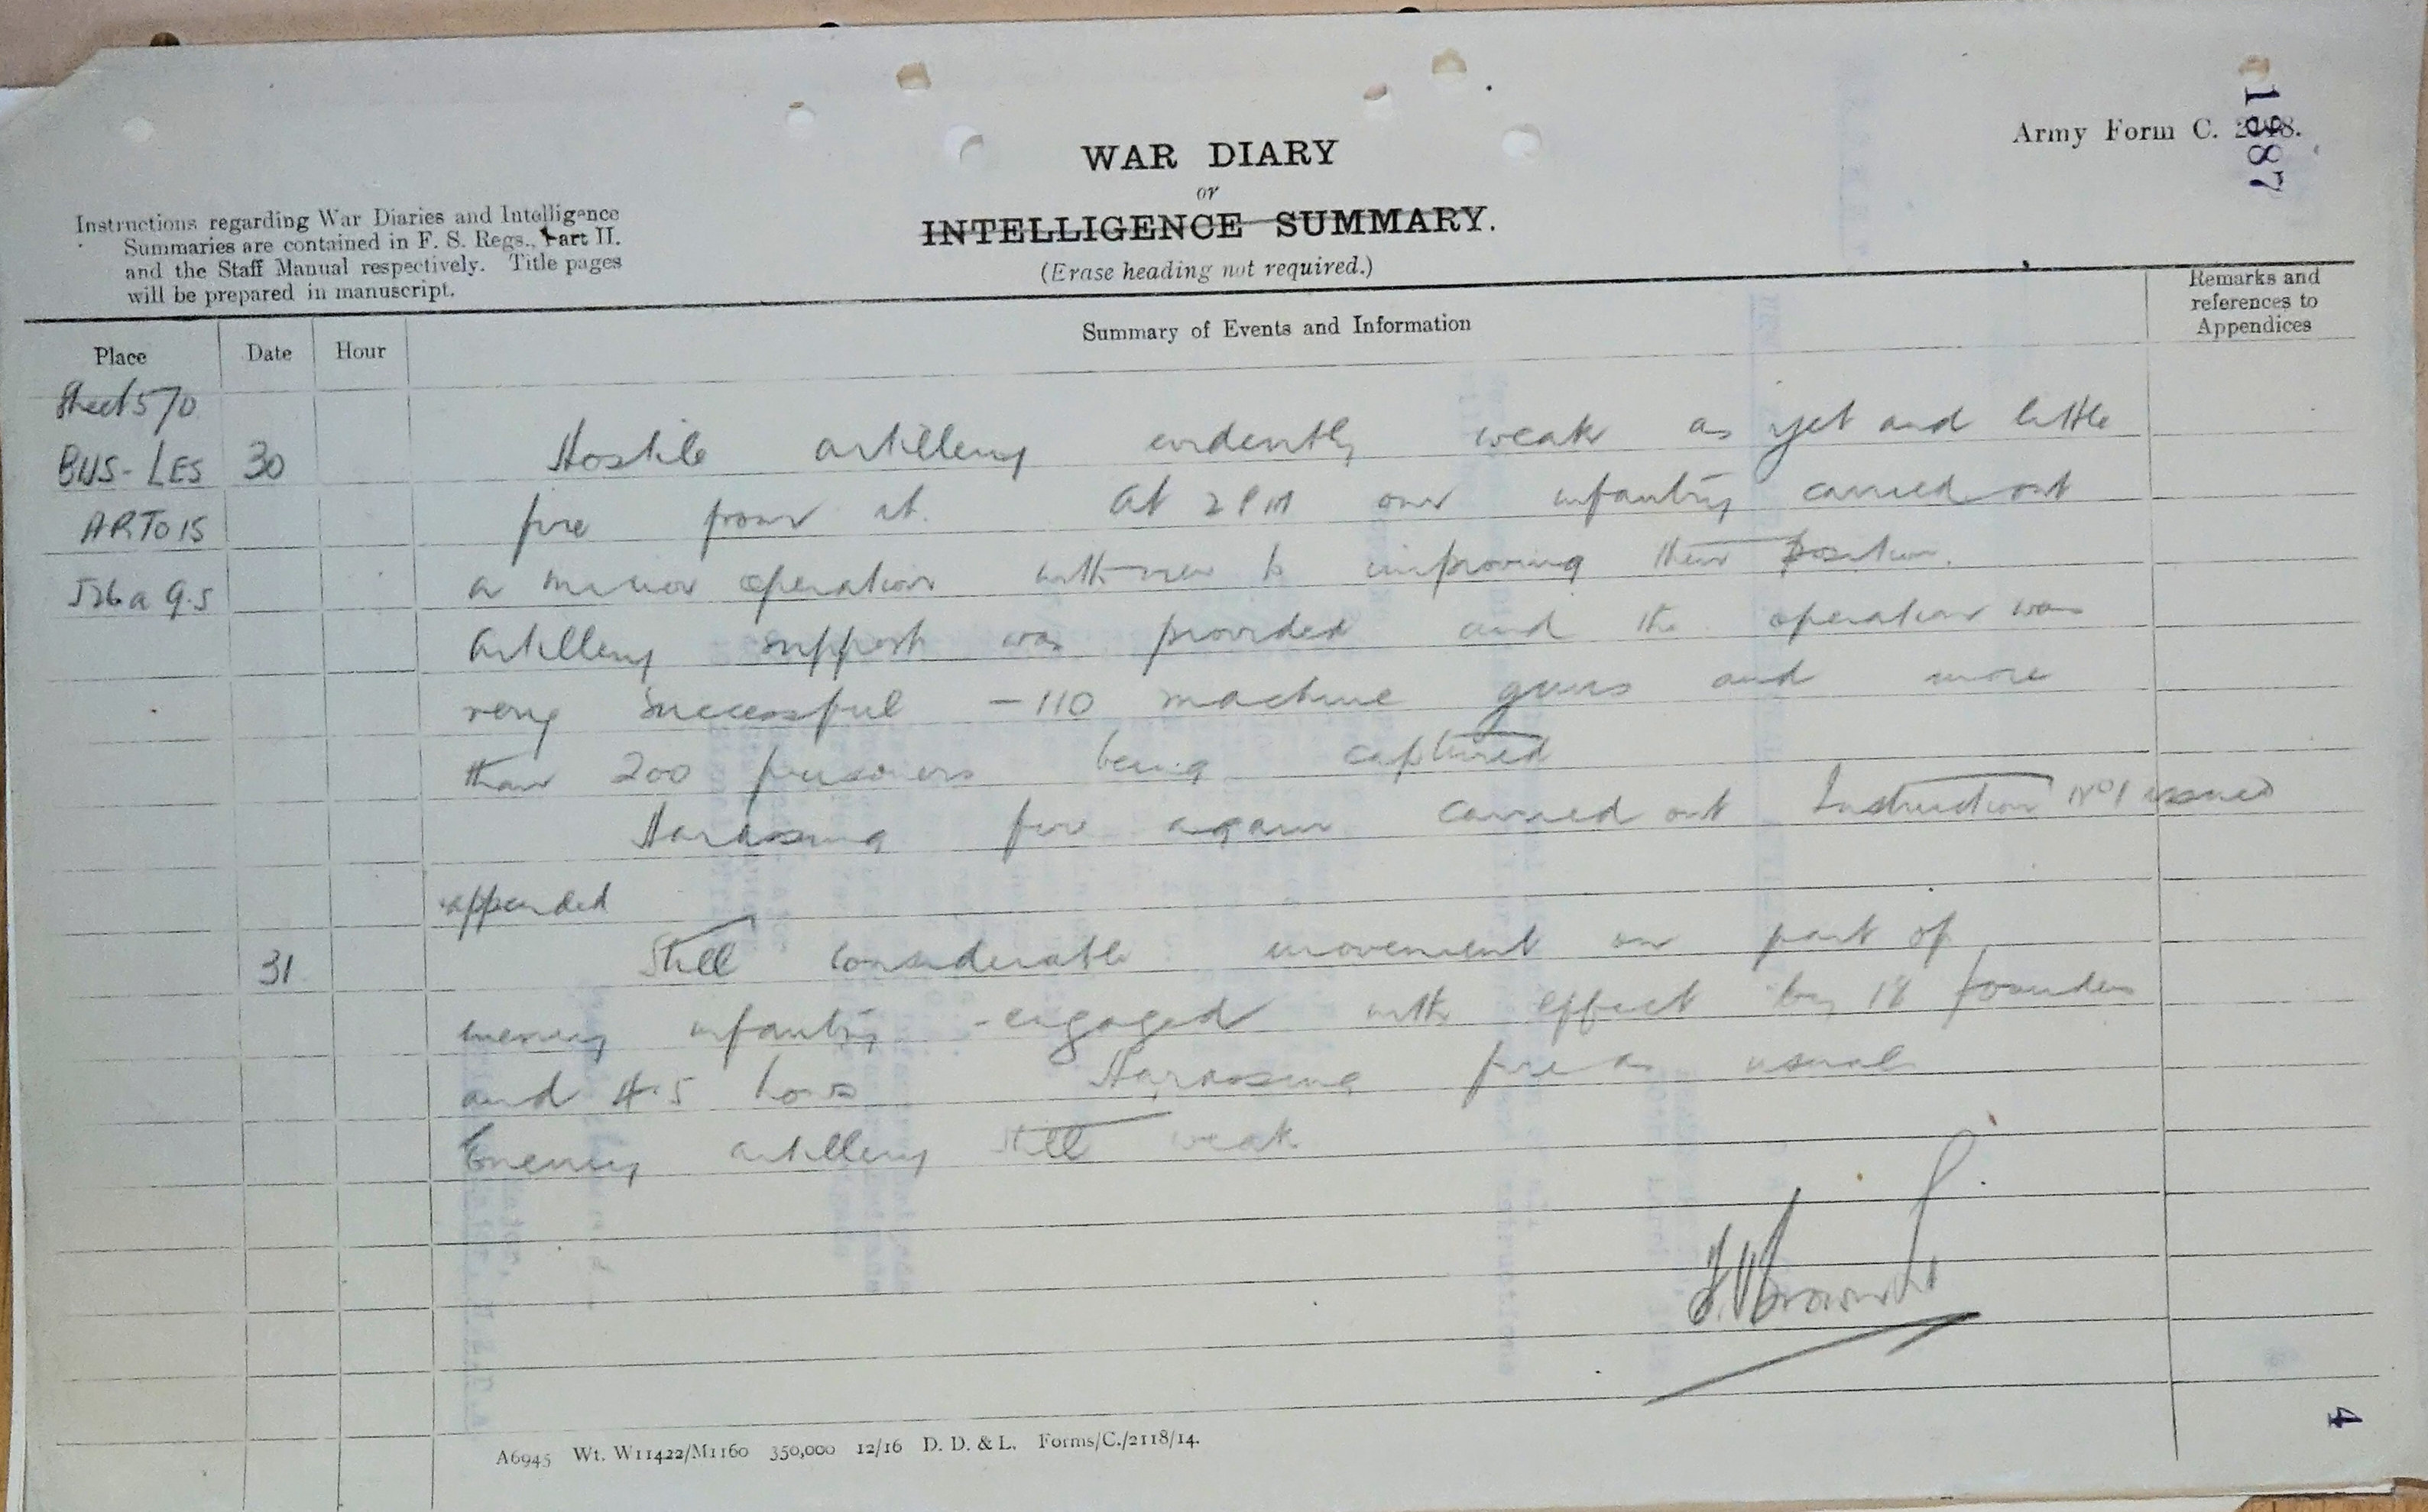 1387
Army Form C. 2118.
WAR DIARY
or
INTELLIGENCE SUMMARY.
(Erase heading not required.)
Instructions regarding War Diaries and Intelligence
Summaries are contained in F. S. Regs., Part II.
and the Staff Manual respectively. Title pages
will be prepared in manuscript.
Place Date Hour Summary of Events and Information Remarks and references to Appendices
Sheet 57D
BUS-LES 30 Hostile artillery evidently weak as yet and little
ARTOIS fire from it. At 2 PM our infantry carried out
J26a 9.5 a minor operation with view to improving their position.
Artillery support was provided and the operation was
very successful - 110 machine guns and more
than 200 prisoners being captured
Harassing fire again carried out Instruction No 1 issued
appended
31 Still considerable movement on part of
enemy infantry - engaged with effect by 18 pounders
and 4.5 hows Harassing fire as usual
Enemy artillery still weak
A6945 Wt. W11422/M1160 350,000 12/16 D. D. & L. Forms/C./2118/14.
4